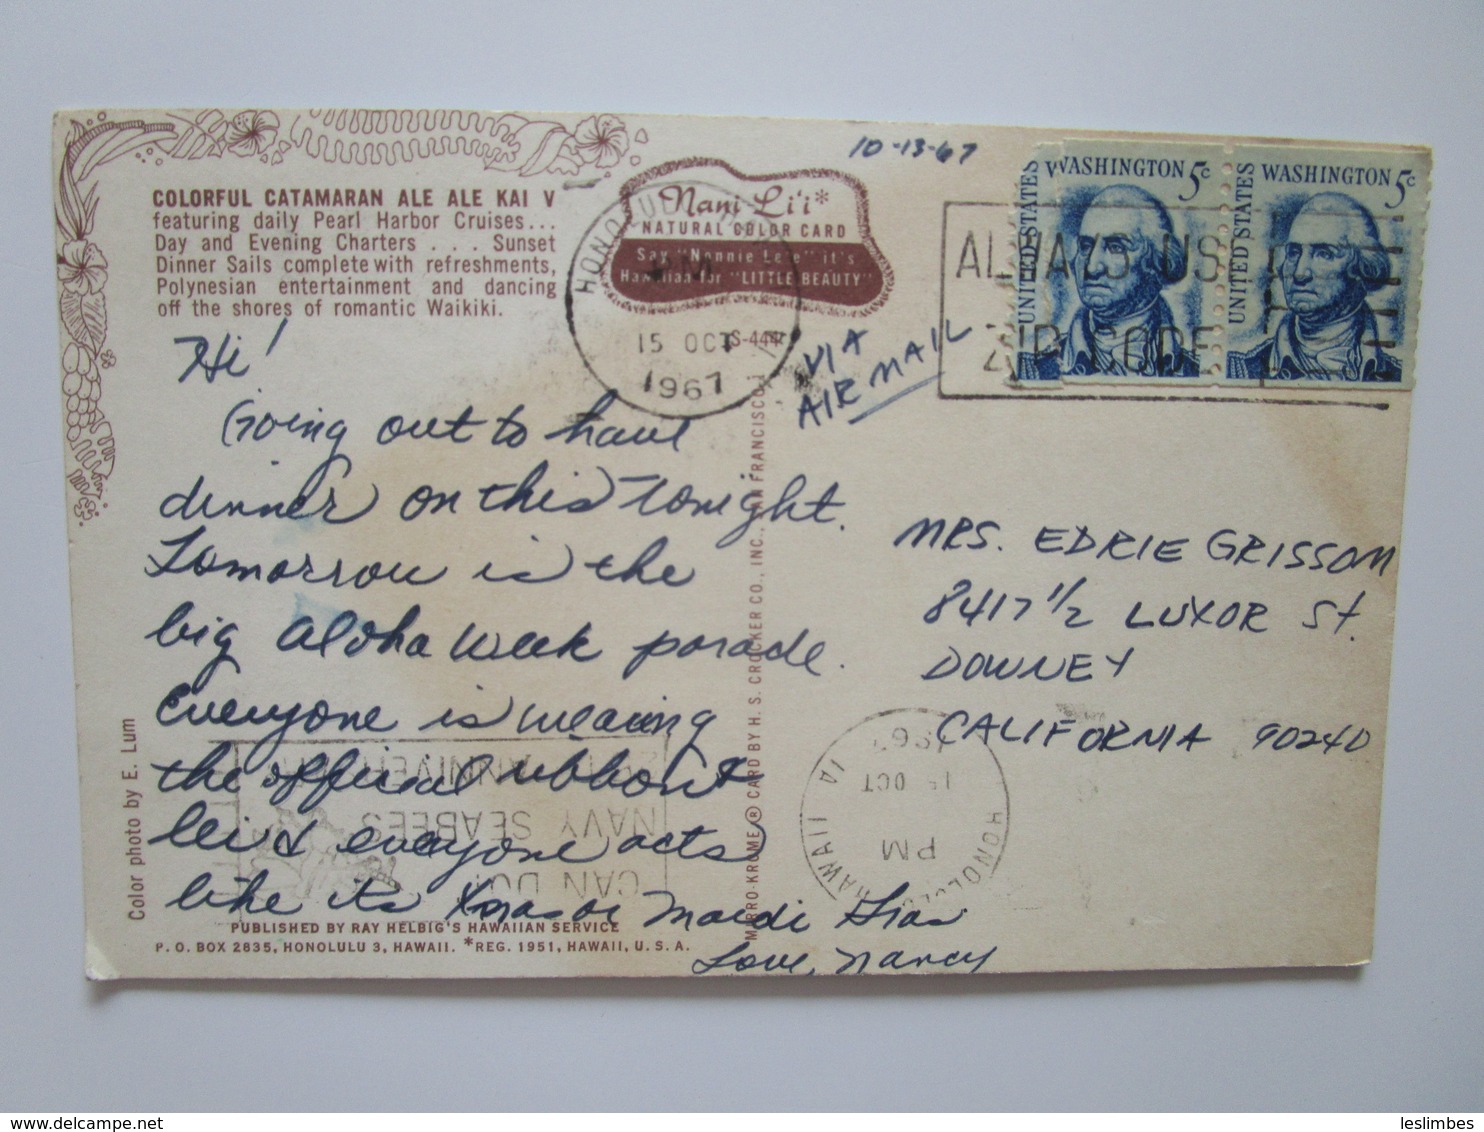 COLORFUL CATAMARAN ALE ALE KAI V
featuring daily Pearl Harbor Cruises...
Day and Evening Charters . . . Sunset
Dinner Sails complete with refreshments,
Polynesian entertainment and dancing
off the shores of romantic Waikiki.
Nani Li'i*
NATURAL COLOR CARD
Say "Nannie Lee" it's
Hawaiian for "LITTLE BEAUTY"
S-444
10-13-67
HONOLULU
PM
15 OCT
1967
VIA
AIR MAIL
ALWAYS USE
ZIP CODE
UNITED STATES WASHINGTON 5c
UNITED STATES WASHINGTON 5c
Hi!
Going out to have
dinner on this tonight.
Tomorrow is the
big aloha week parade.
Everyone is wearing
the official ribbon &
lei & everyone acts
like its Xmas or Mardi Gras
Love, Nancy
MRS. EDRIE GRISSOM
8417 1/2 LUXOR St.
DOWNEY
CALIFORNIA 90240
HONOLULU HAWAII
PM
OCT
ANNIVERSARY
NAVY SEABEES
CAN DO!
Color photo by E. Lum
MIRRO-KROME ® CARD BY H. S. CROCKER CO., INC., SAN FRANCISCO
PUBLISHED BY RAY HELBIG'S HAWAIIAN SERVICE
P. O. BOX 2835, HONOLULU 3, HAWAII. *REG. 1951, HAWAII, U. S. A.
leslimbes - delcampe.net